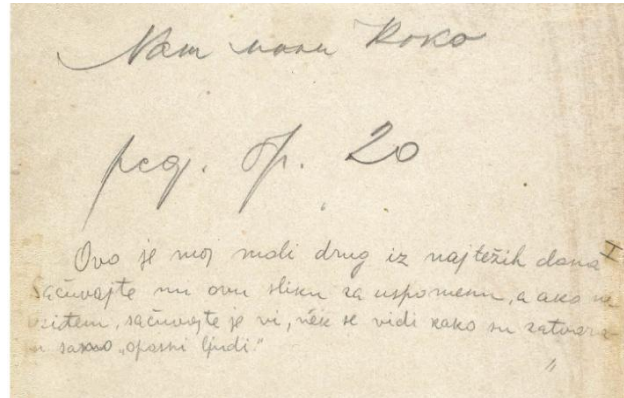 Roko
reg. br. 20
Ovo je moj mali drug iz najtežih dana I
sačuvajte mi ovu sliku za uspomenu, a ako ne
iziđem, sačuvajte je vi, nek se vidi kako su zatvara
samo „opasni ljudi.”
"